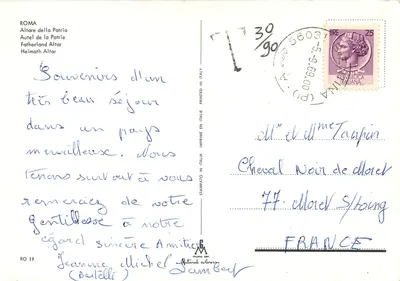 ROMA
Altare della Patria
Autel de la Patrie
Fatherland Altar
Heimath Altar
Souvenirs d'un
très beau séjour
dans un pays
merveilleux. Nous
tenons surtout à vous
remercier de votre
gentillesse à notre
égard sincère Amitiés
Jeanne Michel Lambert
(Bertelli)
RO 19
PRINTED IN ITALY
IMPRIMÉ EN ITALIE
STAMPATO IN ITALIA
T 30/90
56031
5-9.69.00
25
Mr et Mme
Cheval Noir de Moret
77. Moret S/Loing
FRANCE